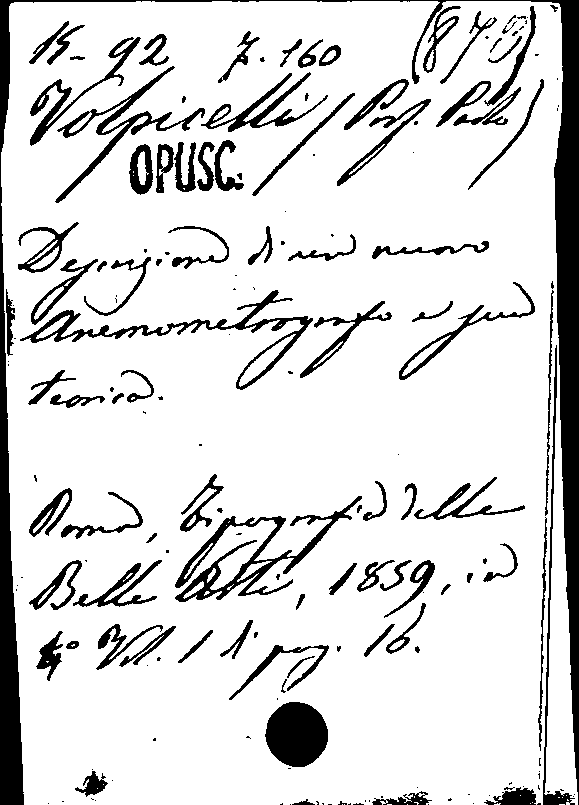 K- 92 Z. 160 (873)
Volpicelli (Prof. Paolo)
OPUSC.
Descrizione di un nuovo
Anemometrografo e sua
teorica.
Roma, Tipografia delle
Belle Arti, 1859, in
4° Vol. 1 di pag. 16.